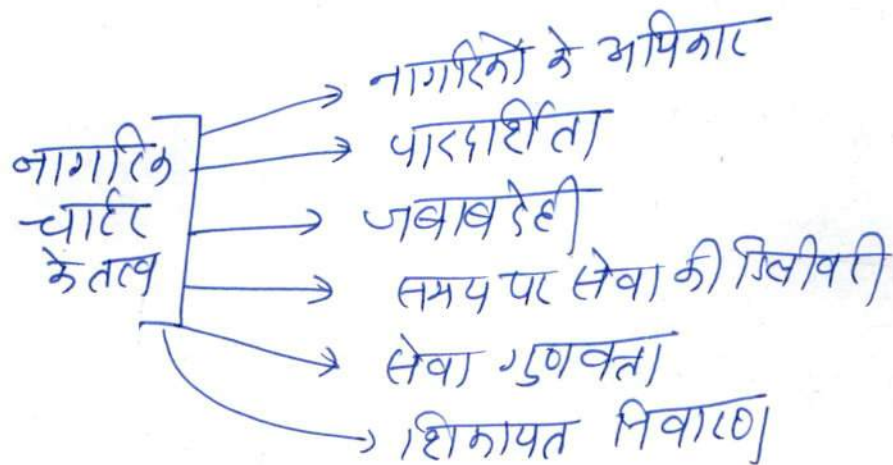 नागरिक
चार्टर
के तत्व
नागरिकों के अधिकार
पारदर्शिता
जबाबदेही
समय पर सेवा की डिलीवरी
सेवा गुणवत्ता
शिकायत निवारण